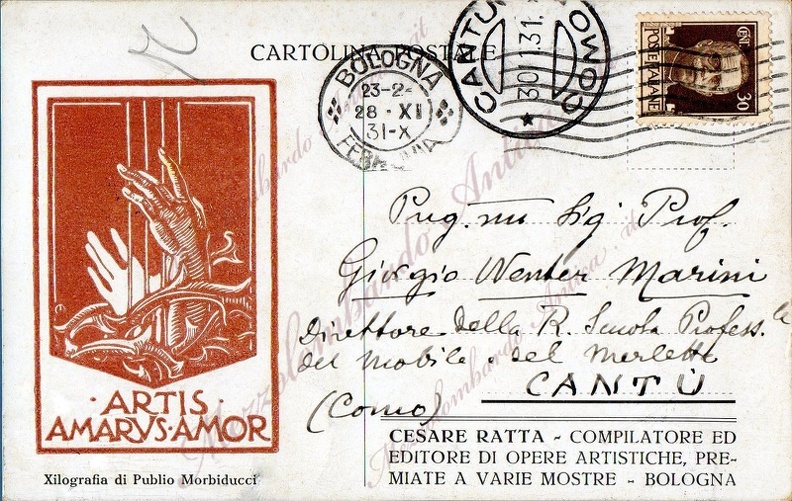 CARTOLINA POSTALE
BOLOGNA
23-2
28 · XI
31-X
FERROVIA
CANTÙ
30.11.31.
COMO
CENT 30
POSTE ITALIANE
Preg.mo Sig Prof.
Giorgio Wenter Marini
Direttore della R. Scuola Profess.le
del mobile e del Merletto
CANTÙ
(Como)
· ARTIS ·
AMARVS · AMOR
Xilografia di Publio Morbiducci
CESARE RATTA - COMPILATORE ED
EDITORE DI OPERE ARTISTICHE, PRE-
MIATE A VARIE MOSTRE - BOLOGNA